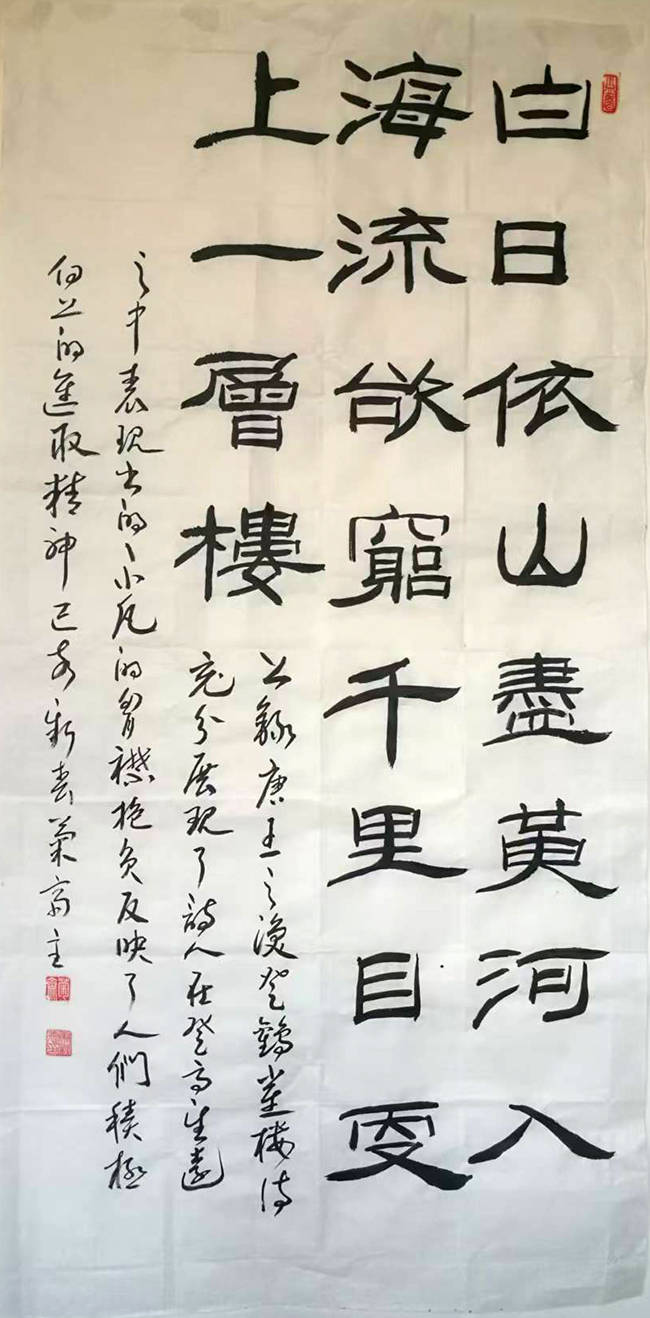 白日依山盡黃河入
海流欲窮千里目更
上一層樓
上錄唐王之渙登鸛雀樓詩
充分展現了詩人在登高望遠
之中表現出的不凡的胸襟抱負反映了人們積極
向上的進取精神己亥新春